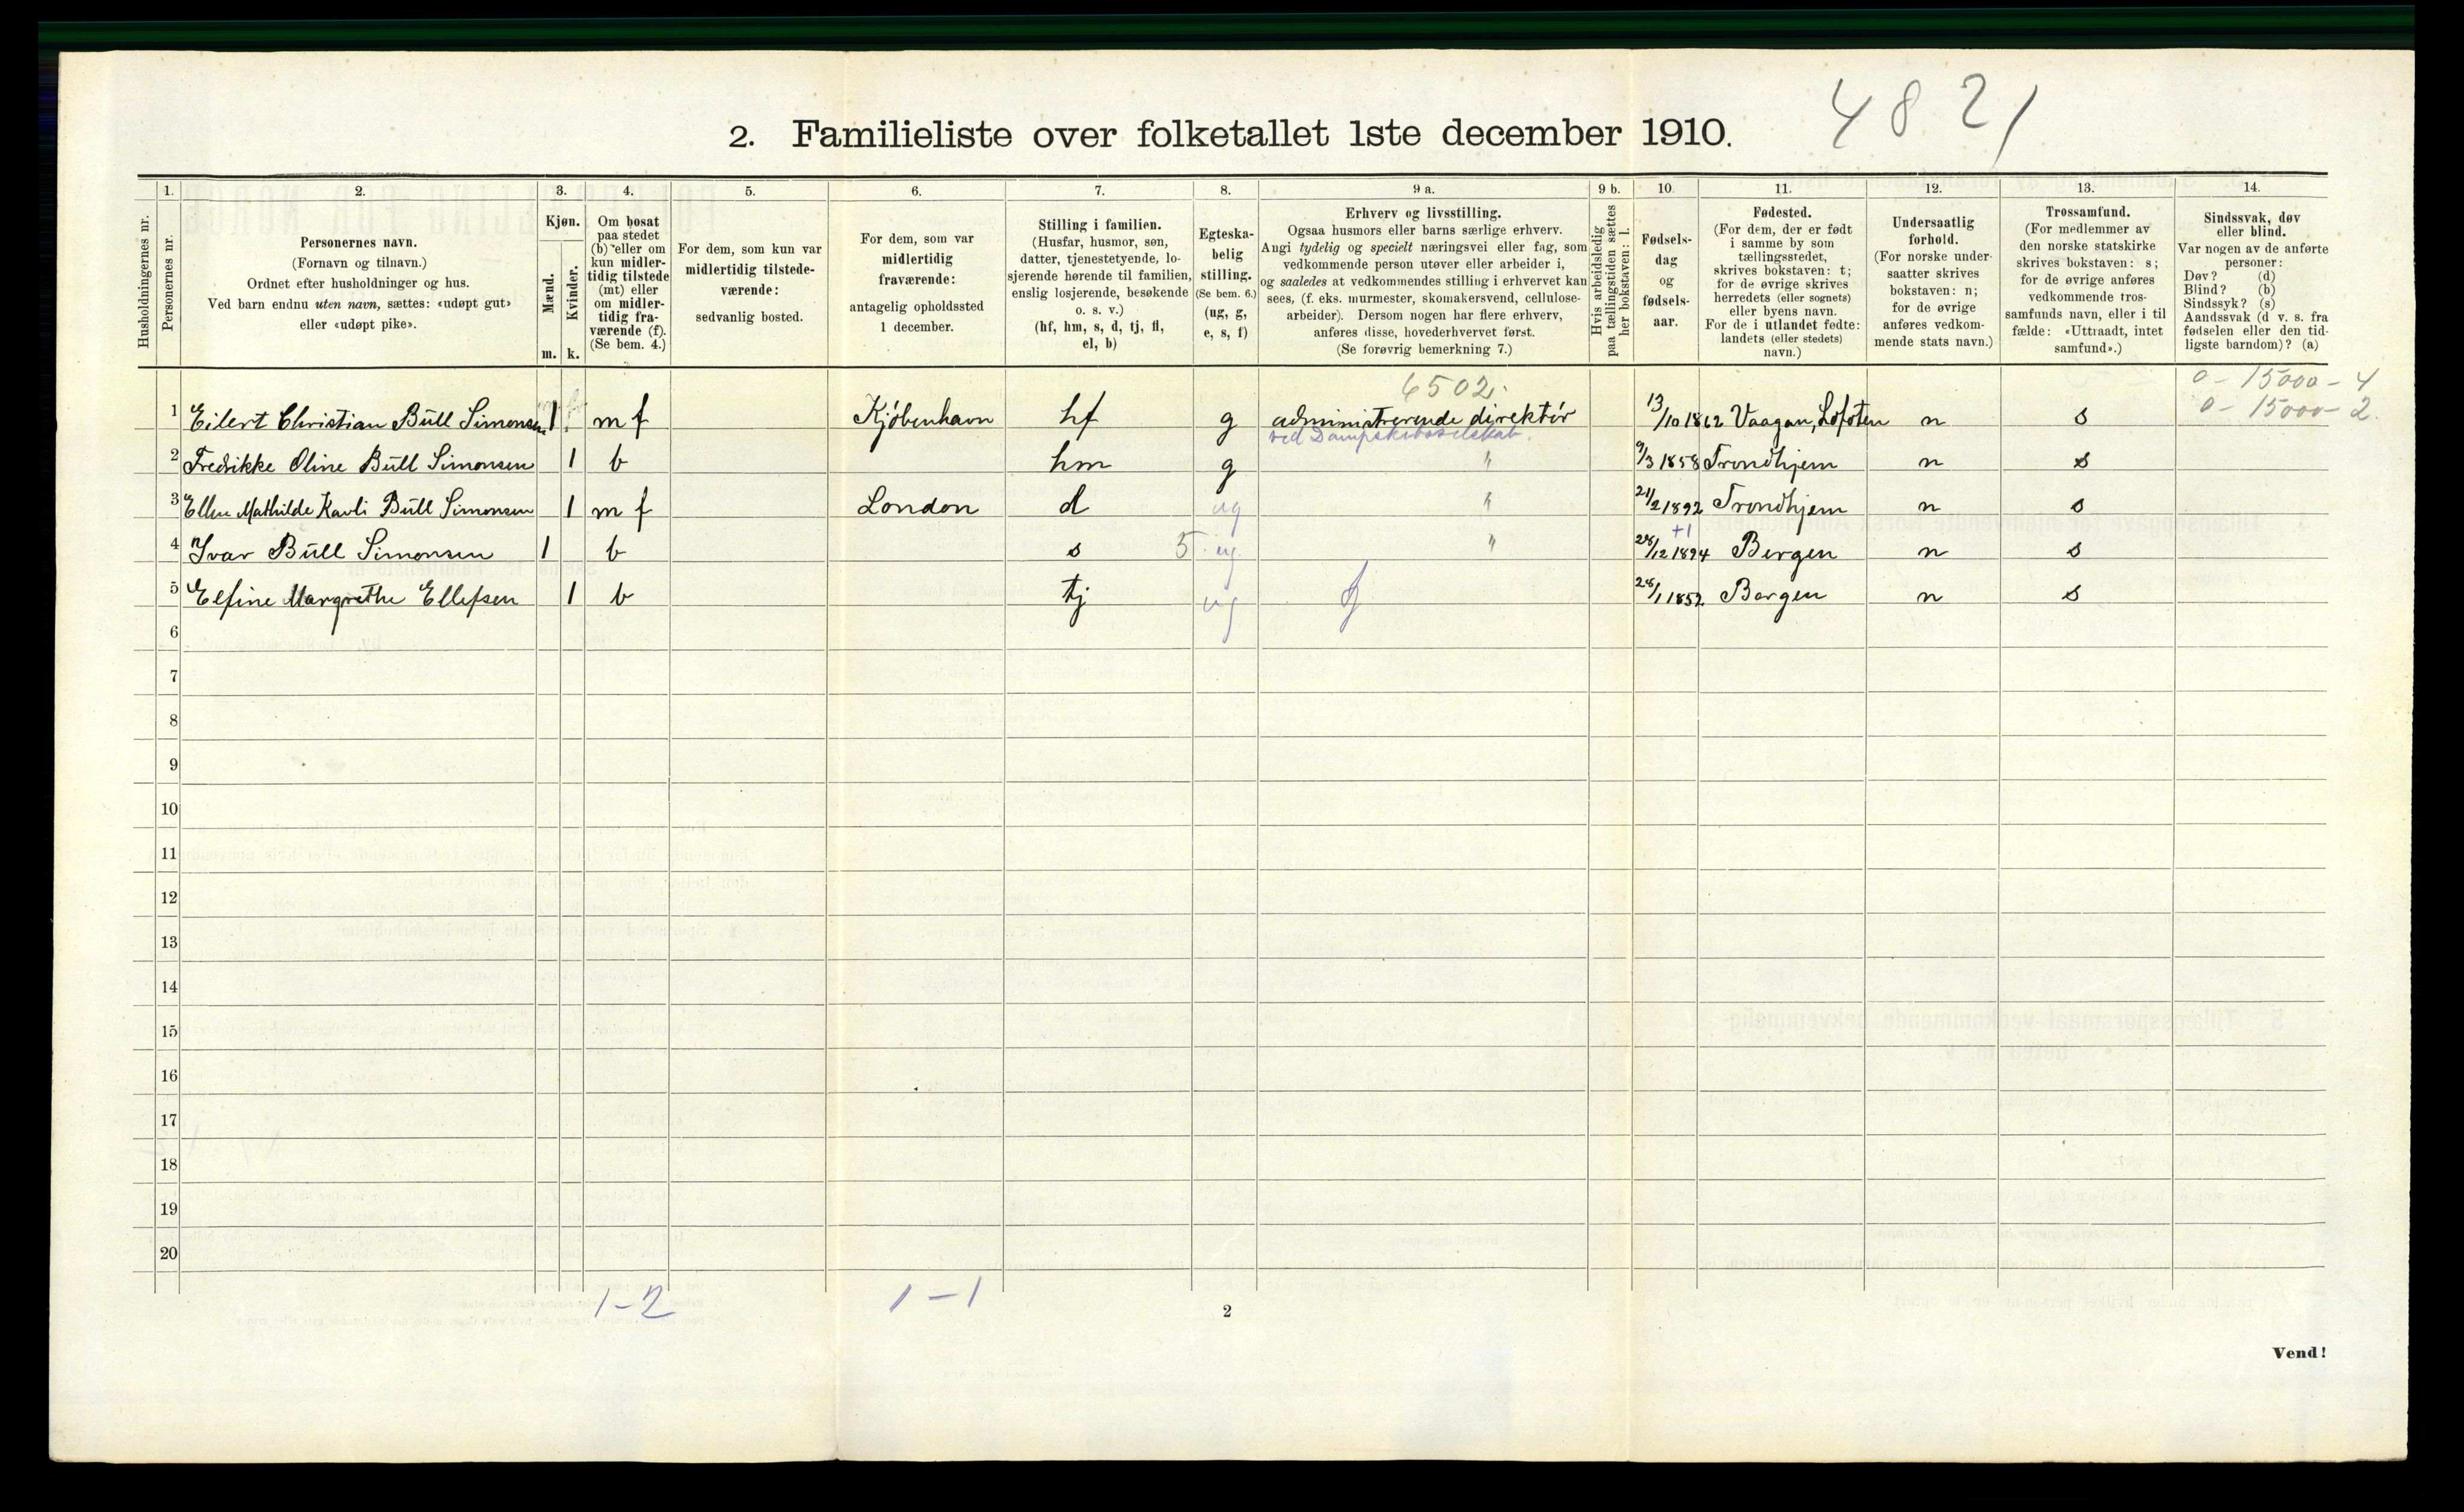 4821
2. Familieliste over folketallet 1ste december 1910.
1. 2. 3. 4. 5. 6. 7. 8. 9 a. 9 b. 10. 11. 12. 13. 14.
Husholdningernes nr.
Personernes nr.
Personernes navn.
(Fornavn og tilnavn.)
Ordnet efter husholdninger og hus.
Ved barn endnu uten navn, sættes: «udøpt gut»
eller «udøpt pike».
Kjøn.
Mænd.
Kvinder.
m. k.
Om bosat
paa stedet
(b) eller om
kun midler-
tidig tilstede
(mt) eller
om midler-
tidig fra-
værende (f).
(Se bem. 4.)
For dem, som kun var
midlertidig tilstede-
værende:
sedvanlig bosted.
For dem, som var
midlertidig
fraværende:
antagelig opholdssted
1 december.
Stilling i familien.
(Husfar, husmor, søn,
datter, tjenestetyende, lo-
sjerende hørende til familien,
enslig losjerende, besøkende
o. s. v.)
(hf, hm, s, d, tj, fl,
el, b)
Egteska-
belig
stilling.
(Se bem. 6.)
(ug, g,
e, s, f)
Erhverv og livsstilling.
Ogsaa husmors eller barns særlige erhverv.
Angi tydelig og specielt næringsvei eller fag, som
vedkommende person utøver eller arbeider i,
og saaledes at vedkommendes stilling i erhvervet kan
sees, (f. eks. murmester, skomakersvend, cellulose-
arbeider). Dersom nogen har flere erhverv,
anføres disse, hovederhvervet først.
(Se forøvrig bemerkning 7.)
Hvis arbeidsledig
paa tællingstiden sættes
her bokstaven: l.
Fødsels-
dag
og
fødsels-
aar.
Fødested.
(For dem, der er født
i samme by som
tællingsstedet,
skrives bokstaven: t;
for de øvrige skrives
herredets (eller sognets)
eller byens navn.
For de i utlandet fødte:
landets (eller stedets)
navn.)
Undersaatlig
forhold.
(For norske under-
saatter skrives
bokstaven: n;
for de øvrige
anføres vedkom-
mende stats navn.)
Trossamfund.
(For medlemmer av
den norske statskirke
skrives bokstaven: s;
for de øvrige anføres
vedkommende tros-
samfunds navn, eller i til
fælde: «Uttraadt, intet
samfund».)
Sindssvak, døv
eller blind.
Var nogen av de anførte
personer:
Døv? (d)
Blind? (b)
Sindssyk? (s)
Aandssvak (d v. s. fra
fødselen eller den tid-
ligste barndom)? (a)
6502 0 - 15000 - 4
1 Eilert Christian Büll Simonsen 1 mf Kjöbenhavn hf g administrerende direktör 13/10 1862 Vaagan, Lofoten n s 0 - 15000 - 2.
ved Dampskibsselskab.
2 Fredrikke Oline Büll Simonsen 1 b hm g " 9/3 1858 Trondhjem n s
3 Ellen Mathilde Kavli Büll Simonsen 1 mf London d ug " 21/2 1892 Trondhjem n s
+1
4 Ivar Büll Simonsen 1 b s 5 ug " 28/12 1894 Bergen n s
5 Elfine Margrethe Ellefsen 1 b tj ug 28/1 1852 Bergen n s
6
7
8
9
10
11
12
13
14
15
16
17
18
19
20
1-2 1-1
2
Vend!